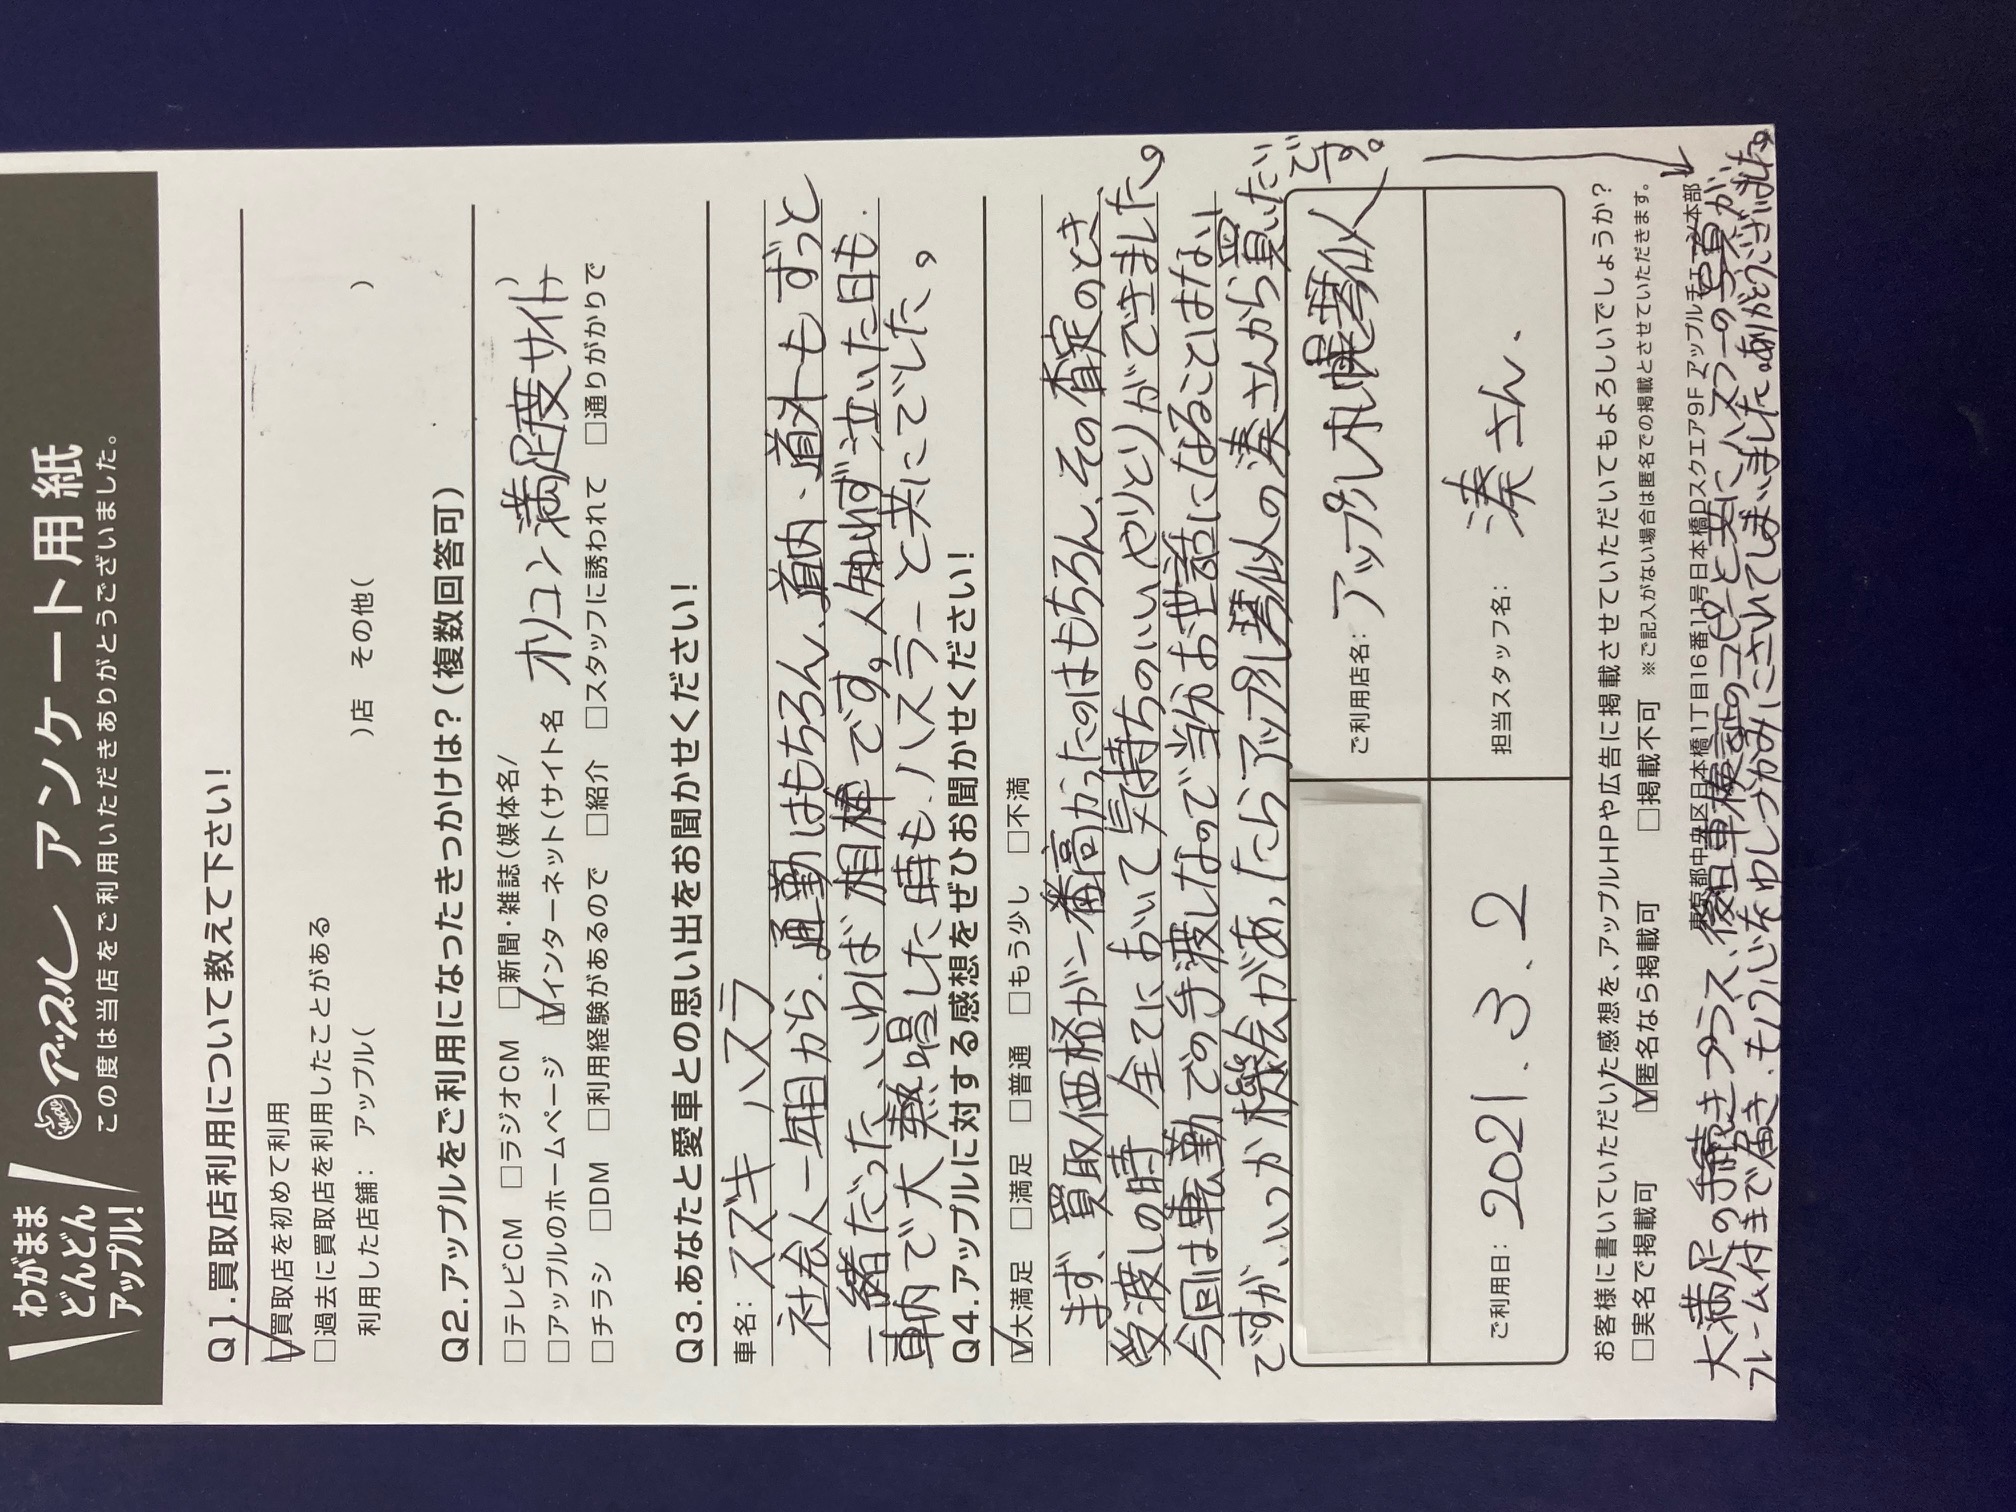 わがまま
どんどん
アップル!
アップル アンケート用紙
この度は当店をご利用いただきありがとうございました。
Q1.買取店利用について教えて下さい!
☑買取店を初めて利用
□過去に買取店を利用したことがある
利用した店舗: アップル( )店 その他( )
Q2.アップルをご利用になったきっかけは?(複数回答可)
□テレビCM □ラジオCM □新聞・雑誌(媒体名/ )
□アップルのホームページ ☑インターネット(サイト名 オリコン満足度サイト
□チラシ □DM □利用経験があるので □紹介 □スタッフに誘われて □通りがかりで
Q3.あなたと愛車との思い出をお聞かせください!
車名: スズキ ハスラー
社会人一年目から、通勤はもちろん、道内、道外もずっと
一緒だった、いわば相棒です。人知れず泣いた日も、
車内で大熱唱した時も、ハスラーと共にでした。
Q4.アップルに対する感想をぜひお聞かせください!
☑大満足 □満足 □普通 □もう少し □不満
まず、買取価格が一番高かったのはもちろん、その査定のとき
受渡しの時 全てにおいて気持ちのいいやりとりができました。
今回は転勤での手渡しなので当分お世話になることはない
ですが、いつか機会があったらアップル琴似の湊さんから買いたい
です。
ご利用店名: アップル札幌琴似
ご利用日: 2021.3.2
担当スタッフ名: 湊さん.
お客様に書いていただいた感想を、アップルHPや広告に掲載させていただいてもよろしいでしょうか?
□実名で掲載可 ☑匿名なら掲載可 □掲載不可 ※ご記入がない場合は匿名での掲載とさせていただきます。
東京都中央区日本橋1丁目16番11号日本橋Dスクエア9F アップルチェーン本部
大満足の手続きプラス、後日車検証のコピーと共にハスラーの写真が
フレーム付きで届き、もう心をわしづかみにされてしまいました。ありがとうございました。